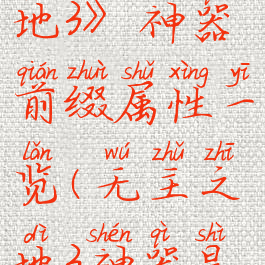 地3》神器
qián zhuì shǔ xìng yī
前缀属性一
lǎn wú zhǔ zhī
览(无主之
dì shén qì shì
地3神器是